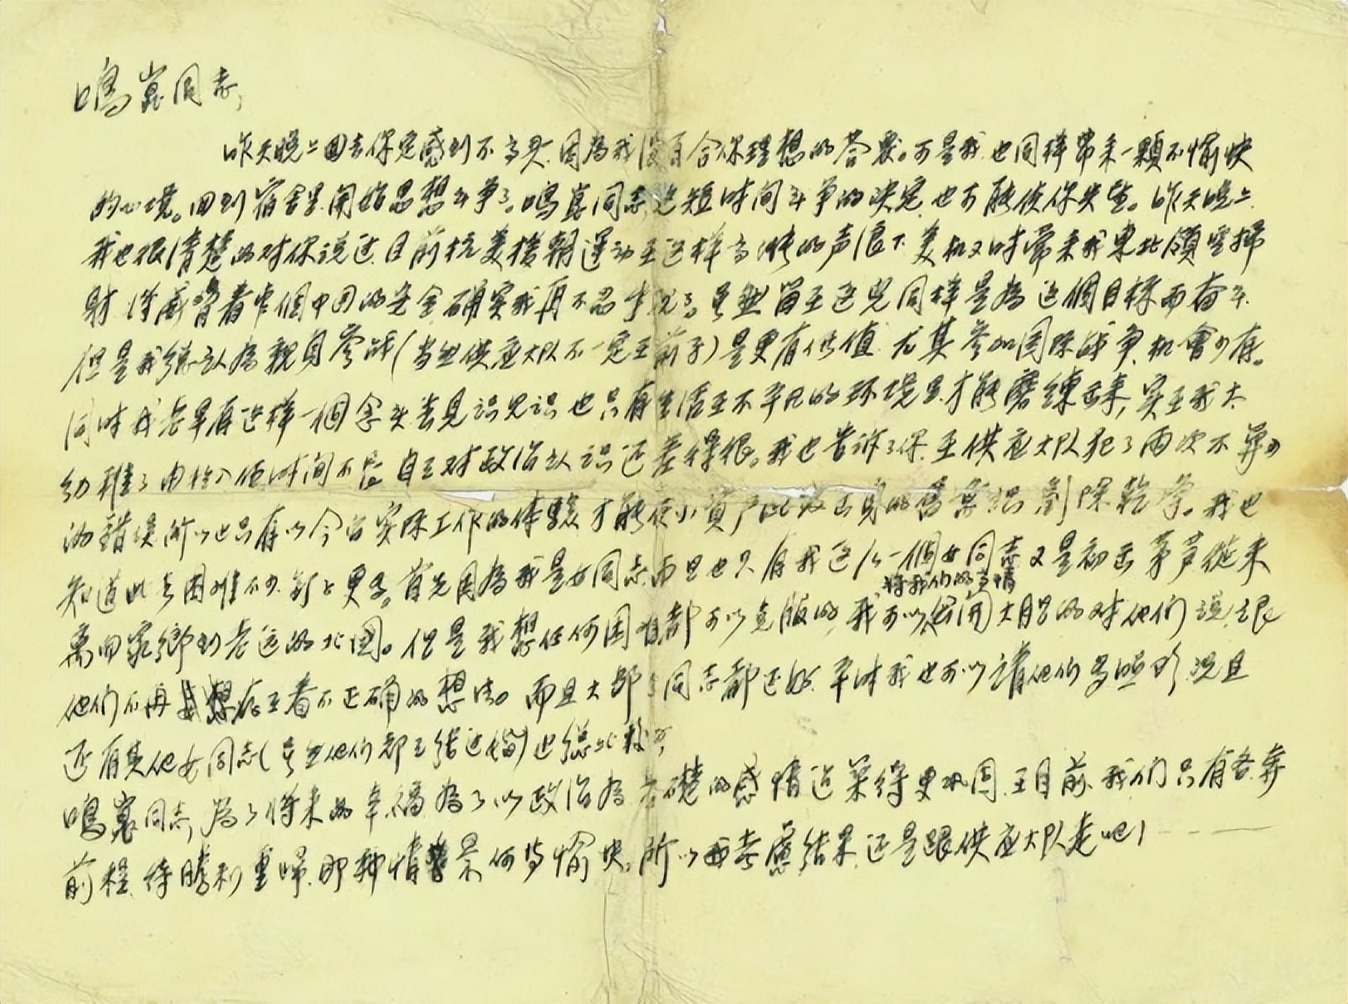 鳴崑同志,
昨天晚上回去你定感到不高兴,因為我沒有合你理想的答覆。可是我也同样带来一顆不愉快
的心境。回到宿舍里開始思想斗争了。鳴崑同志这短时间斗争的决定,也可能使你失望。昨天晚上
我也很清楚的对你说过,目前抗美援朝運动在这样高涨的声浪下,美机又时常来我東北領空掃
射,威脅着中国的安全,确实我再不忍了。虽然留在这兒同样是為这個目標而奋斗,
但是我総认為親身參战(当然供应大队不一定在前方)是更有价值,尤其參加国际战争,机會少有。
同时我老早有这样一個念头,去見識見識,也只有生活在不平凡的环境里,才能磨練出来,实在我太
幼稚了,由於入伍时间不長,自己对政治认识还差得很。我也告诉了你,在供应大队犯了两次不
錯誤,所以也只有以今后实际工作的体驗,才能使小資产出身的舊意識剷除乾净。我也
知道此去困难不少,首先因為我是女同志,而且也只有我这么一個女同志,又是初出茅芦,從来
离回家鄉到老远的北国。但是我想任何困难都可以克服的,我可以将我们的事情公開大胆的对他们说,
他们不再想存在着不正确的想法。而且大部分同志都还好,平时我也可以請他们多照顾,况且
还有其他女同志(虽然他们都已结过婚)也総比較好。
鳴崑同志,為了将来的幸福,為了以政治為基礎的感情边築得更巩固,在目前我们只有各奔
前程,待勝利重歸,那种情景何等愉快。所以再考慮结果,还是跟供应大队走吧!